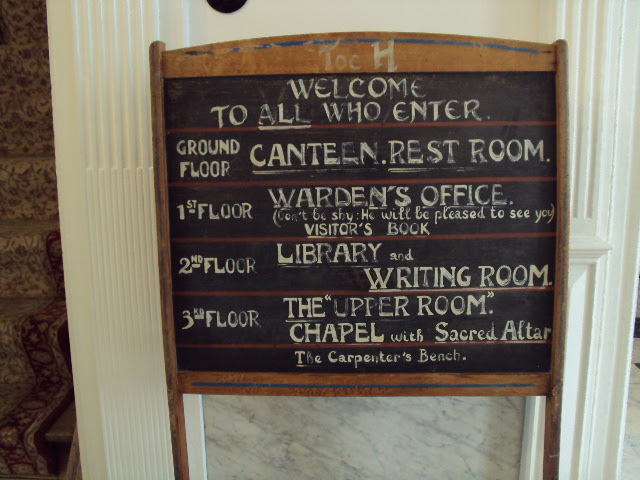 Toc H
WELCOME
TO ALL WHO ENTER.
GROUND FLOOR CANTEEN. REST ROOM.
1ST FLOOR WARDEN'S OFFICE.
(Don't be shy: He will be pleased to see you)
VISITOR'S BOOK
2ND FLOOR LIBRARY and
WRITING ROOM.
3RD FLOOR THE "UPPER ROOM".
CHAPEL with Sacred Altar
The Carpenter's Bench.